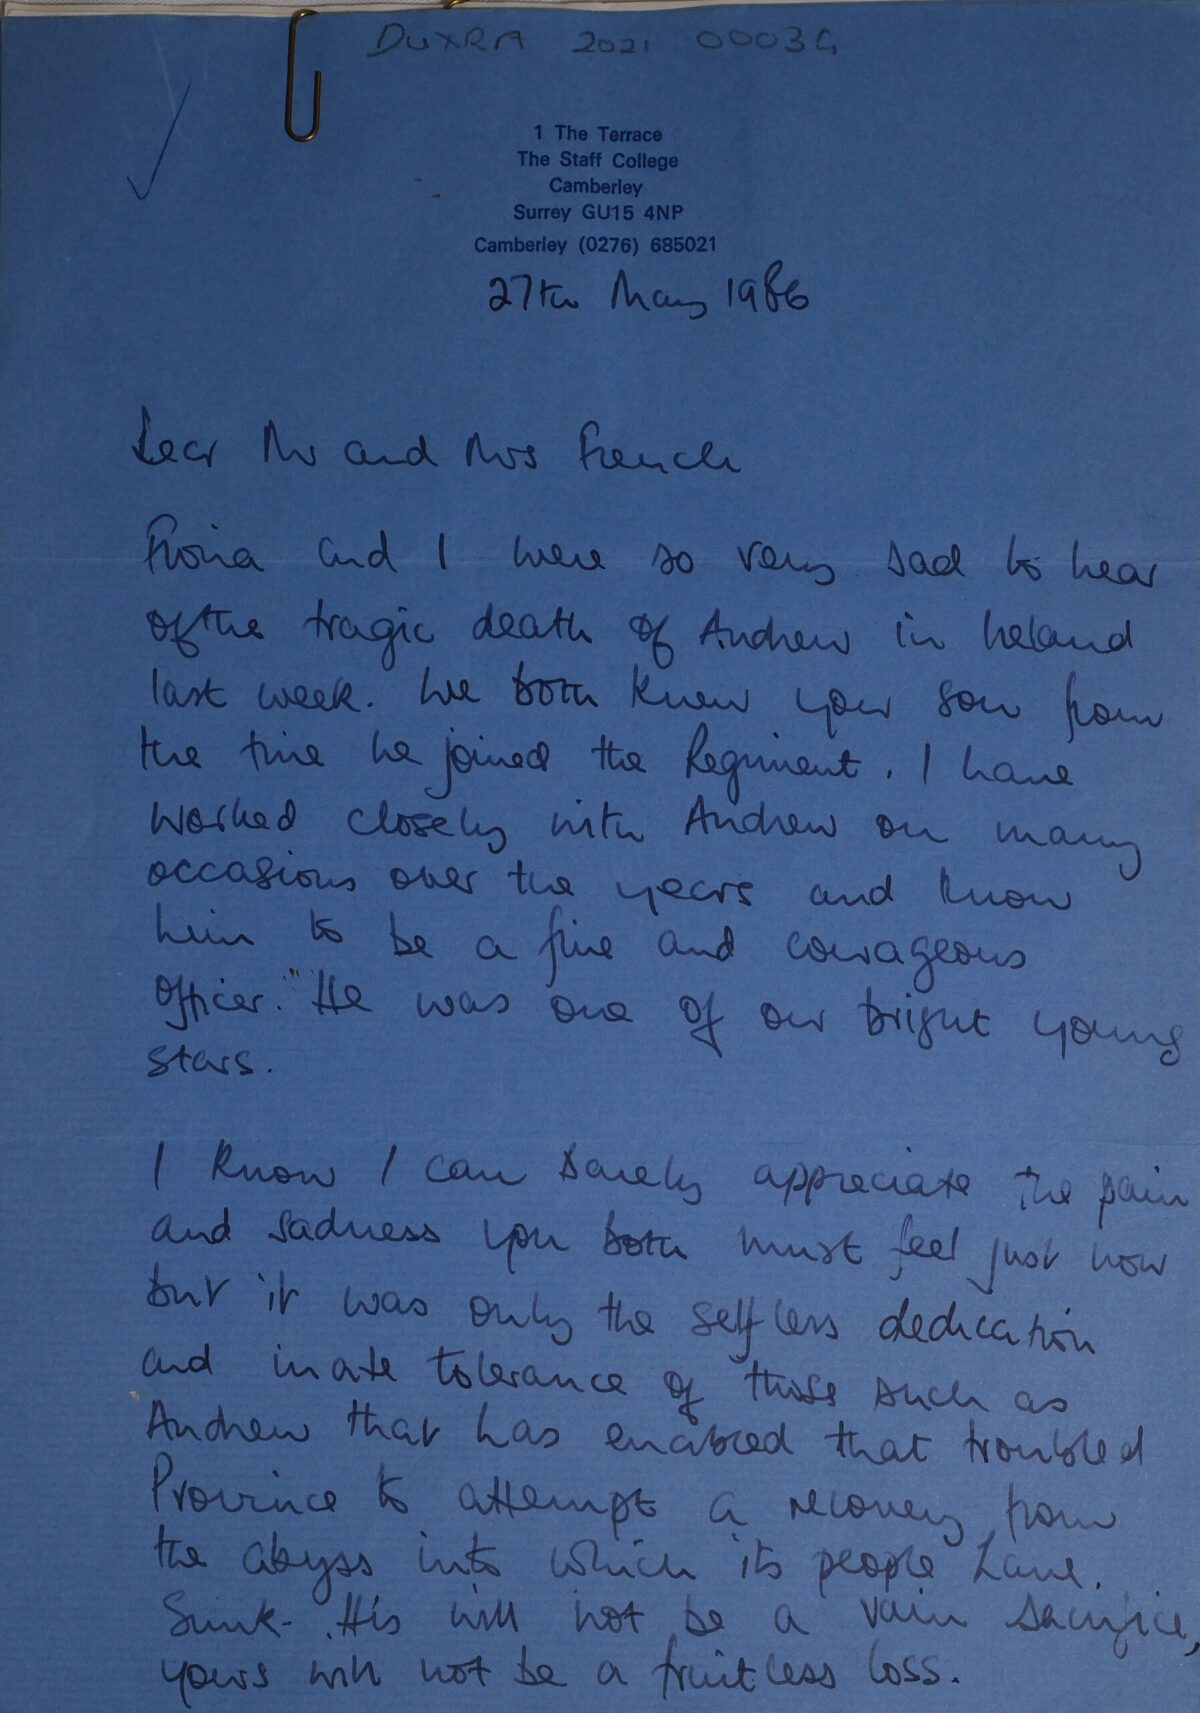 DUXRA 2021 00039
1 The Terrace
The Staff College
Camberley
Surrey GU15 4NP
Camberley (0276) 685021
27th May 1986
Dear Mr and Mrs French
Fiona and I were so very sad to hear
of the tragic death of Andrew in Ireland
last week. We both knew your son from
the time he joined the Regiment. I have
worked closely with Andrew on many
occasions over the years and know
him to be a fine and courageous
officer." He was one of our bright young
stars.
I know I can barely appreciate the pain
and sadness you both must feel just now
but it was only the selfless dedication
and inate tolerance of those such as
Andrew that has enabled that troubled
Province to attempt a recovery from
the abyss into which its people have
sunk. His will not be a vain sacrifice,
yours will not be a fruitless loss.